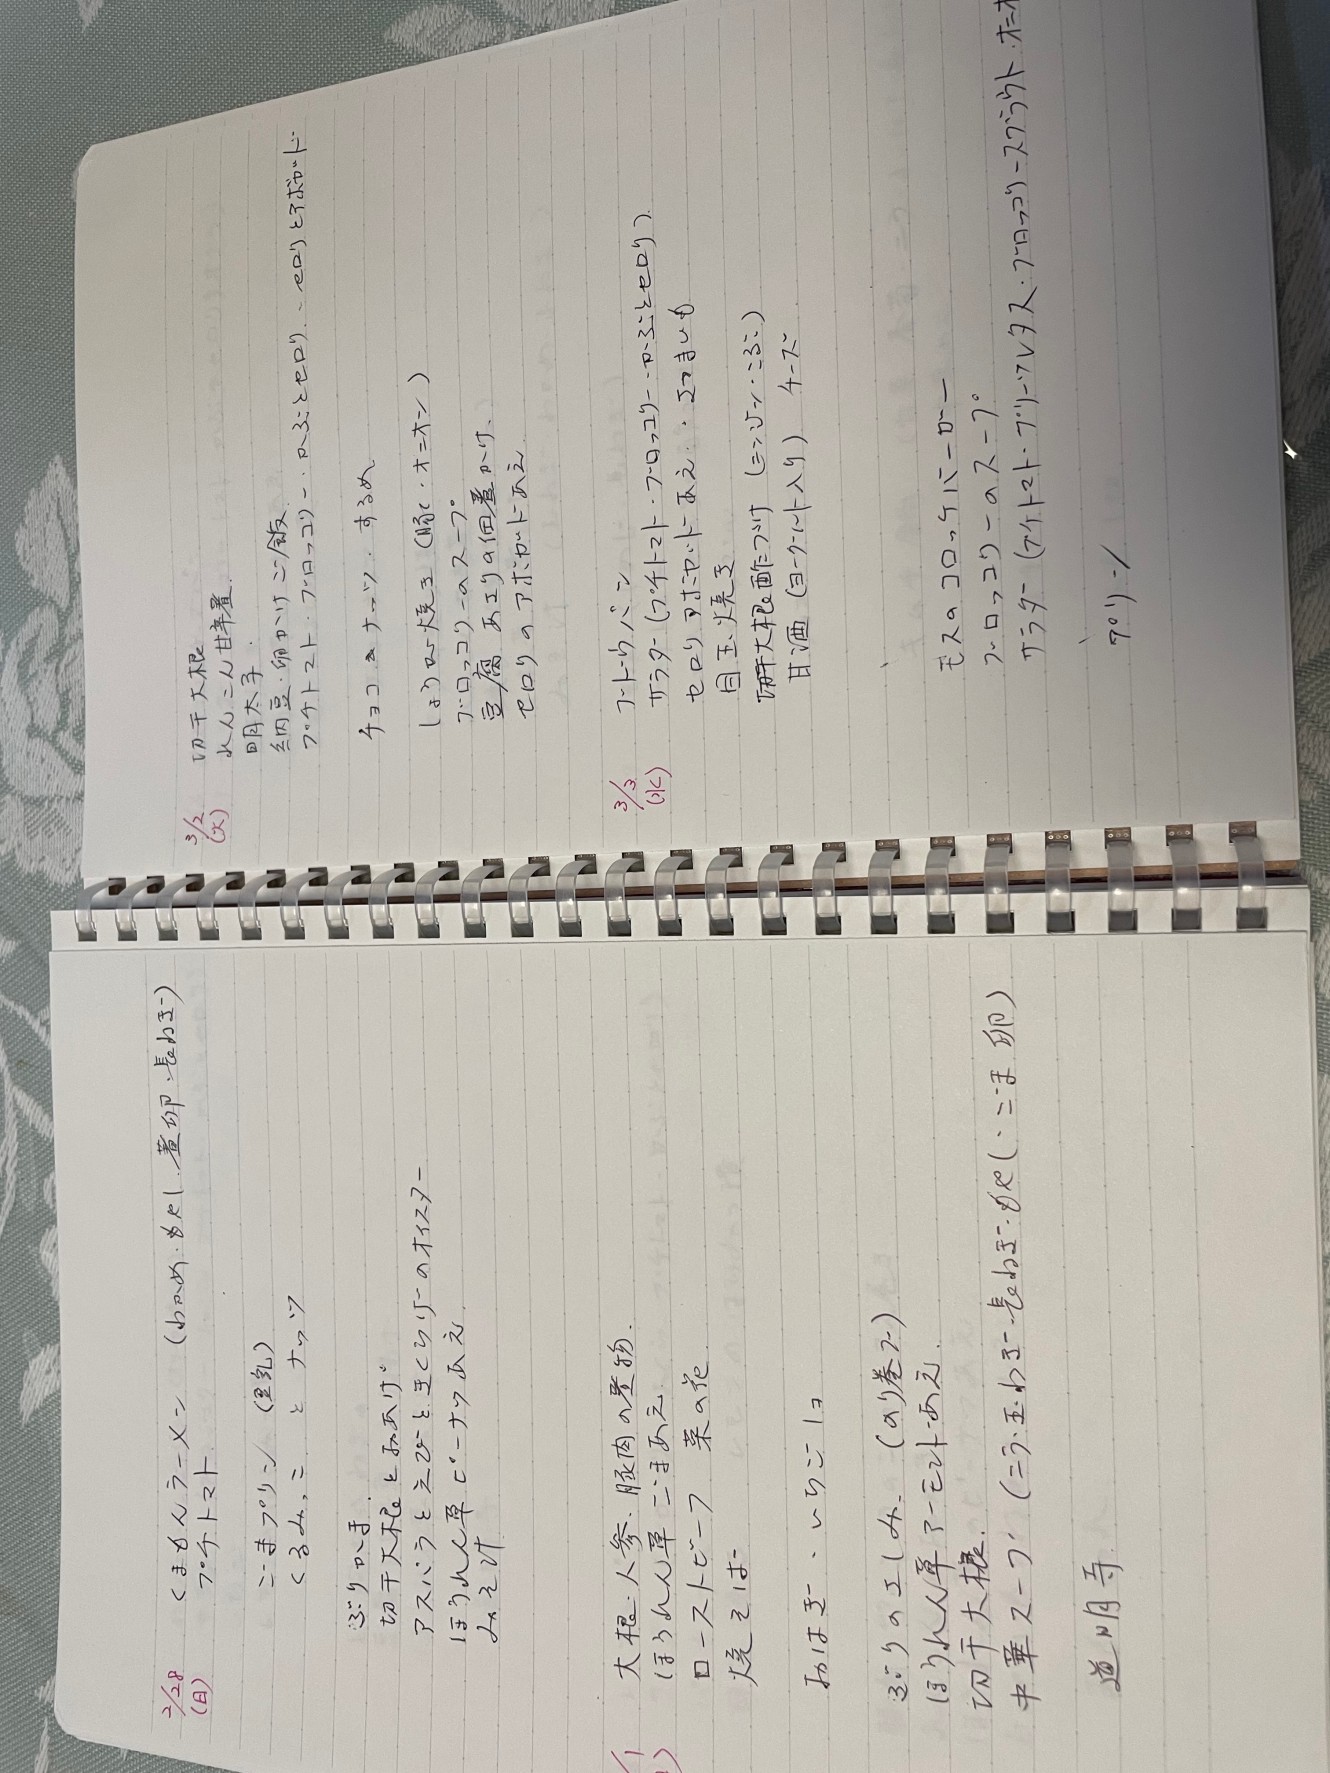 2/28
(日)
くまもんラーメン (わかめ・もやし・煮卵・長ねぎ)
プチトマト
ごまプリン (豆乳)
くるみっこ と ナッツ
ぶりかま
切干大根とおあげ
アスパラとえびときくらげのオイスター
ほうれん草ピーナツあえ
みそ汁
/1
大根・人参・豚肉の煮物
ほうれん草ごまあえ
ローストビーフ 菜の花
焼そば
おはぎ・いちご
ぶりのさしみ (のり巻き)
ほうれん草アーモンドあえ
切干大根
中華スープ (にら・玉ねぎ・長ねぎ・もやし・ごま 卵)
道明寺
3/2
(火)
切干大根
れんこん甘辛煮
明太子
納豆・卵かけご飯
プチトマト・ブロッコリー・かぶとセロリ・セロリとアボカド
チョコ ナッツ するめ
しょうが焼き (豚・オニオン)
ブロッコリーのスープ
豆腐 あさりの佃煮かけ
セロリのアボカドあえ
3/3
(水)
ブドウパン
サラダ (プチトマト・ブロッコリー・かぶとセロリ)
セロリアボカドあえ・さつまいも
目玉焼き
切干大根酢づけ (ニンジン・こぶ)
甘酒 (ヨーグルト入り) チーズ
モスのコロッケバーガー
ブロッコリーのスープ
サラダ (プチトマト・グリーンレタス・ブロッコリースプラウト・オニオ
プリン